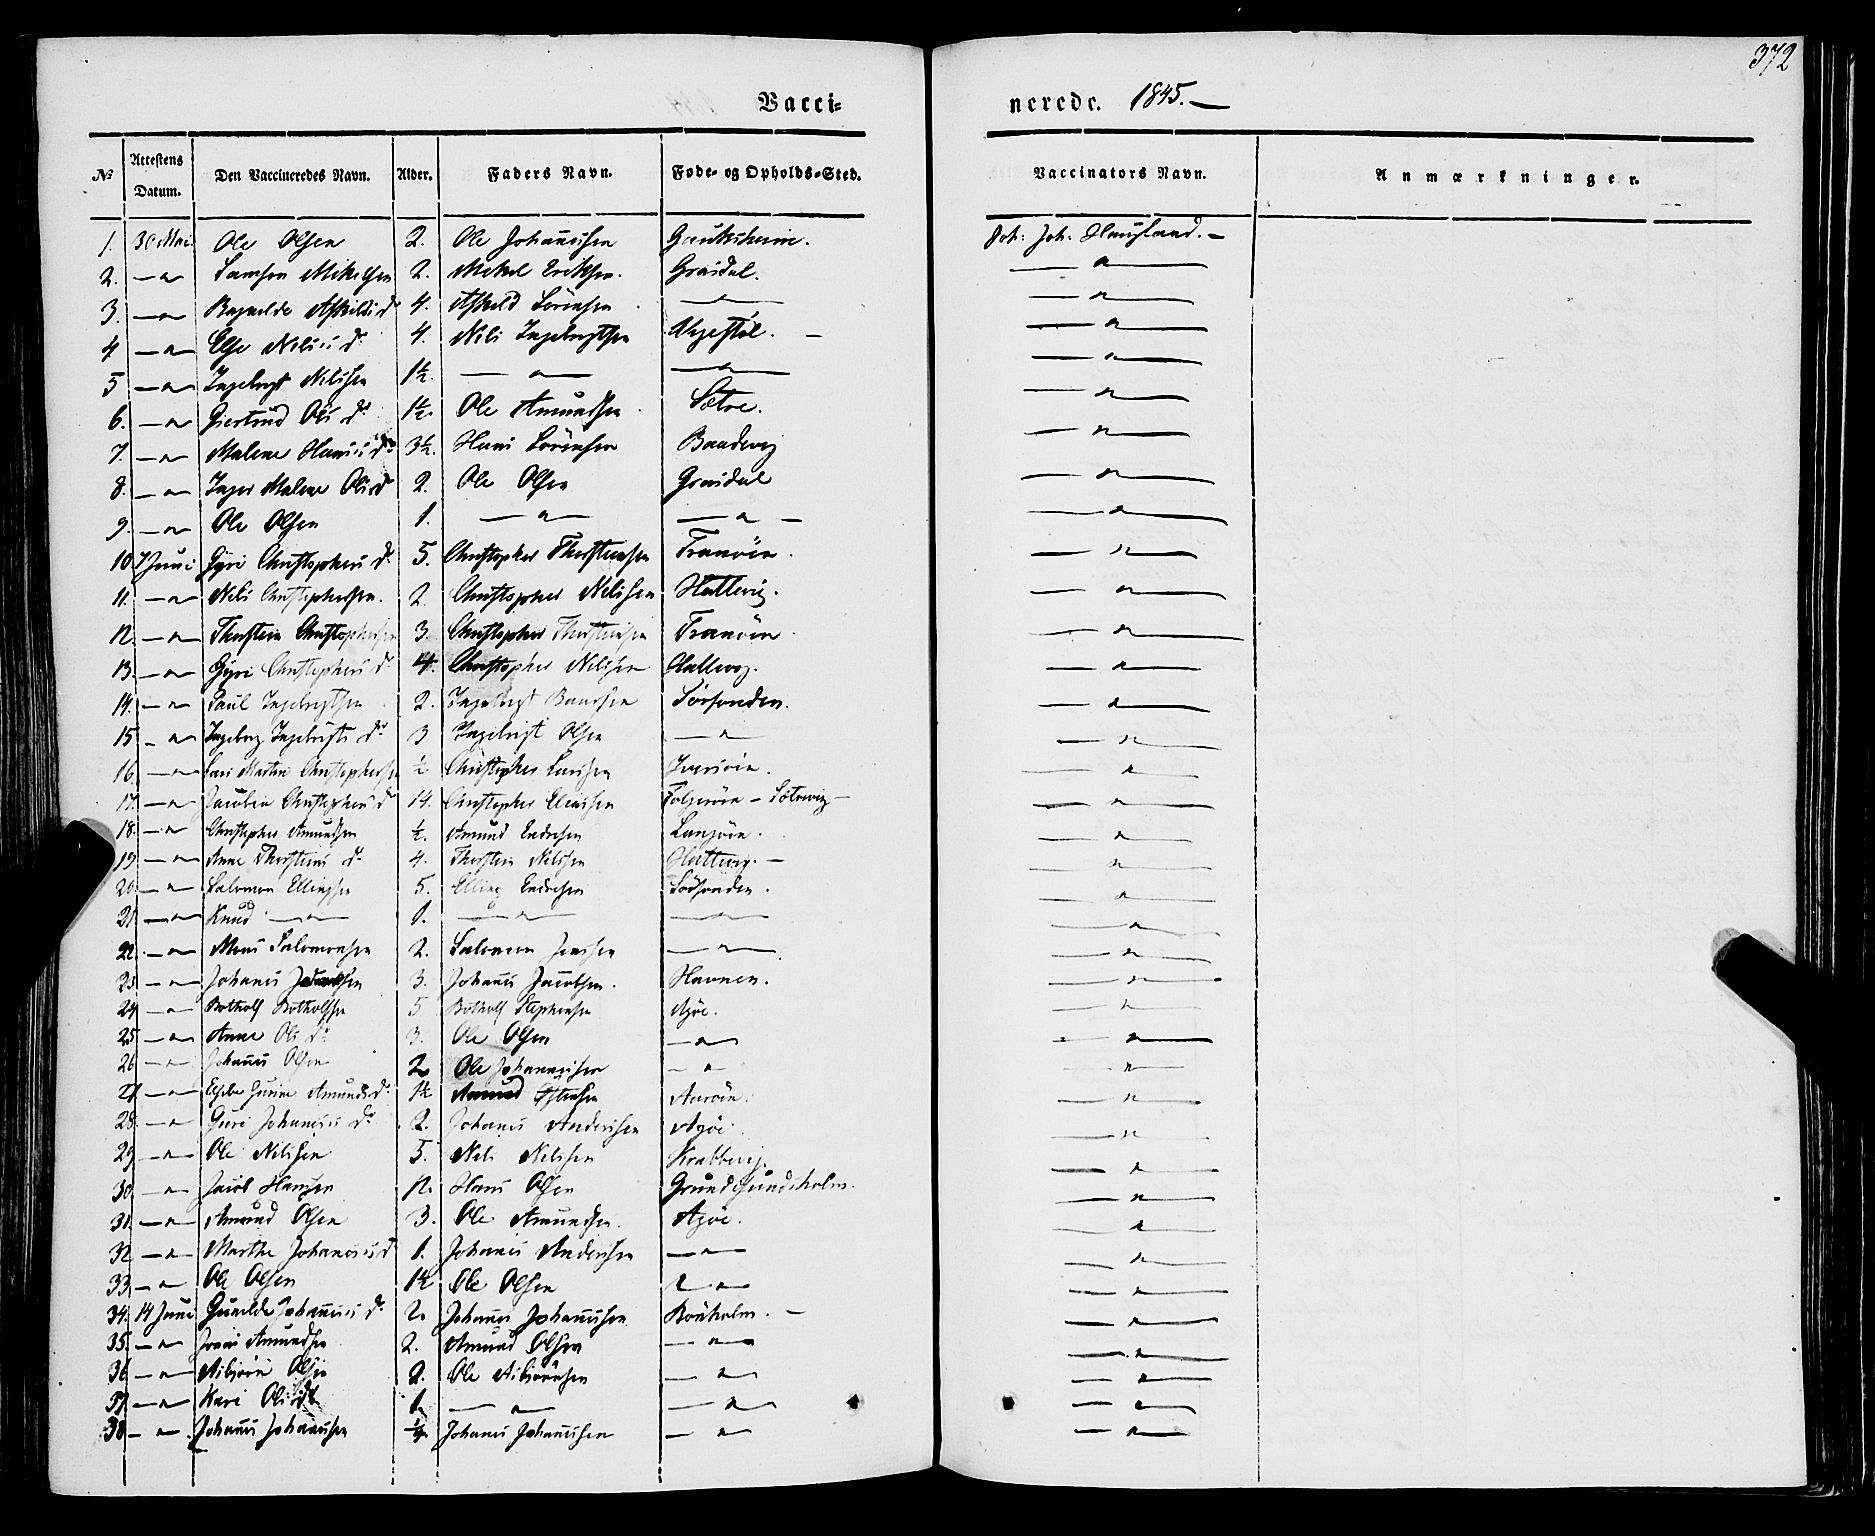 372
Vacci-
nerede. 1845. —
№ | Attestens Datum. | Den Vaccineredes Navn. | Alder. | Faders Navn. | Føde- og Opholds-Sted. | Vaccinators Navn. | Anmærkninger.
1. 30 Mai Ole Olsen 2. Ole Johannesen Gauksheim. Joh: Joh. Haugland. —
2. — " — Samson Mikelsen 2. Mikel Eriksen. Graidal. — " —
3. — " — Ragnilde Askilds D. 4. Askild Sörensen — " — — " —
4 — " — Else Nilsis D. 4. Nils Ingebrigtsen — " —
5 — " — Ingebrigt Nilssen 1½. — " — — " — — " —
6. — " — Giertrud Ols D. 1½. Ole Amundsen Sætre. — " —
7. — " — Malene Hansis D. 3½. Hans Sörensen Baadevig — " —
8. — " — Inger Malene Olis D 2. Ole Olsen Graidal — " —
9. — " — Ole Olsen 1. — " — — " — — " —
10. 7 Juni Gyri Christophers D. 5. Christopher Thorstensen Tranöen. — " —
11. — " — Nils Christophersen. 2. Christopher Nilssen Hattevig. — " —
12. — " — Thorstein Christophersen 3. Christopher Thorstensen Tranöen — " —
13. — " — Gyri Christophers D 4. Christopher Nilssen Hattevig. — " —
14. — " — Paul Ingebrigtsen 2. Ingebrigt Baardsen Sörsonden. — " —
15 — " — Ingeborg Ingebrigts D. 3 Ingebrigt Olsen — " — — " —
16 — " — Lars Martin Christophersen ½ Christopher Larssen Iversöen. — " —
17. — " — Jacobine Christophers D 14. Christopher Eliassen Folgeröen — — " —
18. — " — Christopher Amundsen ½. Amund Endresen Langöen. — " —
19 — " — Anne Thorsteins D. 4. Thorstein Nilssen Hattevig. — — " —
20 — " — Salomon Ellingsen 5. Elling Endresen Sörsonden. — " —
21 — " — Knud — " — 1. — " — — " — — " —
22. — " — Mons Salomonsen 2. Salomon Jenssen — " — — " —
23 — " — Johanes Jacobsen 3. Johanes Jacobsen. Havnen. — " —
24 — " — Botholf Botholfsen 5 Botholf Stephensen Agöe. — " —
25 — " — Anne Ols D. 3. Ole Olsen — " — — " —
26 — " — Johanes Olsen 2 Ole Johannessen — " — — " —
27 — " — Amunds D. 1½ Amund Östensen — " —
28. — " — Guri Johanesis D. 2. Johanes Anderssen Agöe — " —
29 — " — Ole Nilssen 5. Nils Nilssen Krabbevig. — " —
30 — " — Jacob Hansen 12. Hans Olsen Grundesundsholm. — " —
31. — " — Amund Olsen 3. Ole Amundsen. Agöe. — " —
32 — " — Marthe Johanesis D 1. Johanes Anderssen — " — — " —
33 — " — Ole Olsen 1½ Ole Olsen — " — — " —
34. 14 Juni Gunilde Johanesis D. 2. Johanes Johannessen Bonholm. — — " —
35. — " — Amundsen 2. Amund Olsen — " — — " —
36 — " — Asbjörn Olsen 2. Ole Asbjörnsen — " — — " —
37 — " — Kari Olis D. 1. — " — — " — — " —
38 — " — Johanes Johannessen ½ Johanes Johannessen — " — — " —